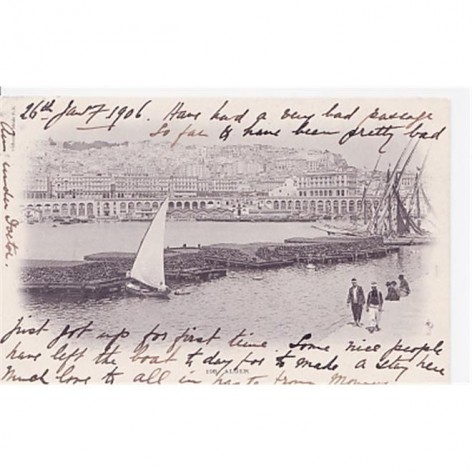 26th Jany 1906. Have had a very bad passage
So far & have been pretty bad
Am under Doctor.
just got up for first time. Some nice people
have left the boat to day for to make a stay here
Much love to all in haste from
ALGER